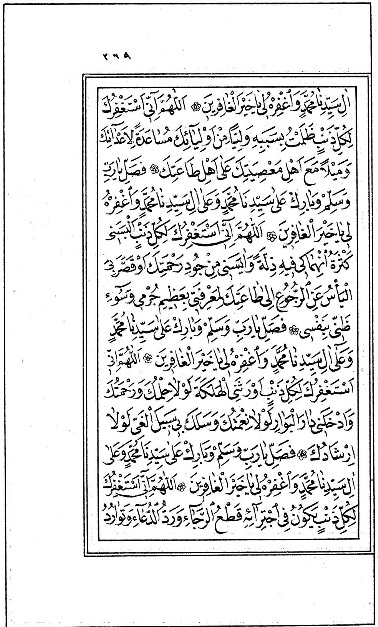 ٢٦٩
اٰلِ سَيِّدِنَا مُحَمَّدٍ وَاغْفِرْهُ لِى يَا خَيْرَ الْغَافِرِينَ ۞ اَللّٰهُمَّ اِنِّى اَسْتَغْفِرُكَ
لِكُلِّ ذَنْبٍ ظَلَمْتُ بِسَبَبِهِ وَلِيًّا مِنْ اَوْلِيَائِكَ مُسَاعَدَةً لِاَعْدَائِكَ
وَمَيْلًا مَعَ اَهْلِ مَعْصِيَتِكَ عَلٰى اَهْلِ طَاعَتِكَ ۞ فَصَلِّ يَا رَبِّ
وَسَلِّمْ وَبَارِكْ عَلٰى سَيِّدِنَا مُحَمَّدٍ وَعَلٰى اٰلِ سَيِّدِنَا مُحَمَّدٍ وَاغْفِرْهُ
لِى يَا خَيْرَ الْغَافِرِينَ ۞ اَللّٰهُمَّ اِنِّى اَسْتَغْفِرُكَ لِكُلِّ ذَنْبٍ اَلْبَسَنِى
كَثْرَةُ انْهِمَاكِى فِيهِ ذِلَّةً وَاٰيَسَنِى مِنْ جُودِ رَحْمَتِكَ اَوْ قَصَّرَ بِى
الْيَأْسُ عَنِ الرُّجُوعِ اِلٰى طَاعَتِكَ لِمَعْرِفَتِى بِعَظِيمِ جُرْمِى وَسُوءِ
ظَنِّى بِنَفْسِى ۞ فَصَلِّ يَا رَبِّ وَسَلِّمْ وَبَارِكْ عَلٰى سَيِّدِنَا مُحَمَّدٍ
وَعَلٰى اٰلِ سَيِّدِنَا مُحَمَّدٍ وَاغْفِرْهُ لِى يَا خَيْرَ الْغَافِرِينَ ۞ اَللّٰهُمَّ اِنِّى
اَسْتَغْفِرُكَ لِكُلِّ ذَنْبٍ اَوْرَثَنِى الْهَلَكَةَ لَوْلَا حِلْمُكَ وَرَحْمَتُكَ
وَاَدْخَلَنِى دَارَ الْبَوَارِ لَوْلَا نِعْمَتُكَ وَسَلَكَ بِى سَبِيلَ الْغَىِّ لَوْلَا
اِرْشَادُكَ ۞ فَصَلِّ يَا رَبِّ وَسَلِّمْ وَبَارِكْ عَلٰى سَيِّدِنَا مُحَمَّدٍ وَعَلٰى
اٰلِ سَيِّدِنَا مُحَمَّدٍ وَاغْفِرْهُ لِى يَا خَيْرَ الْغَافِرِينَ ۞ اَللّٰهُمَّ اِنِّى اَسْتَغْفِرُكَ
لِكُلِّ ذَنْبٍ يَكُونُ فِى اجْتِرَائِهِ قَطْعُ الرَّجَاءِ وَرَدُّ الدُّعَاءِ وَتَوَارُدُ